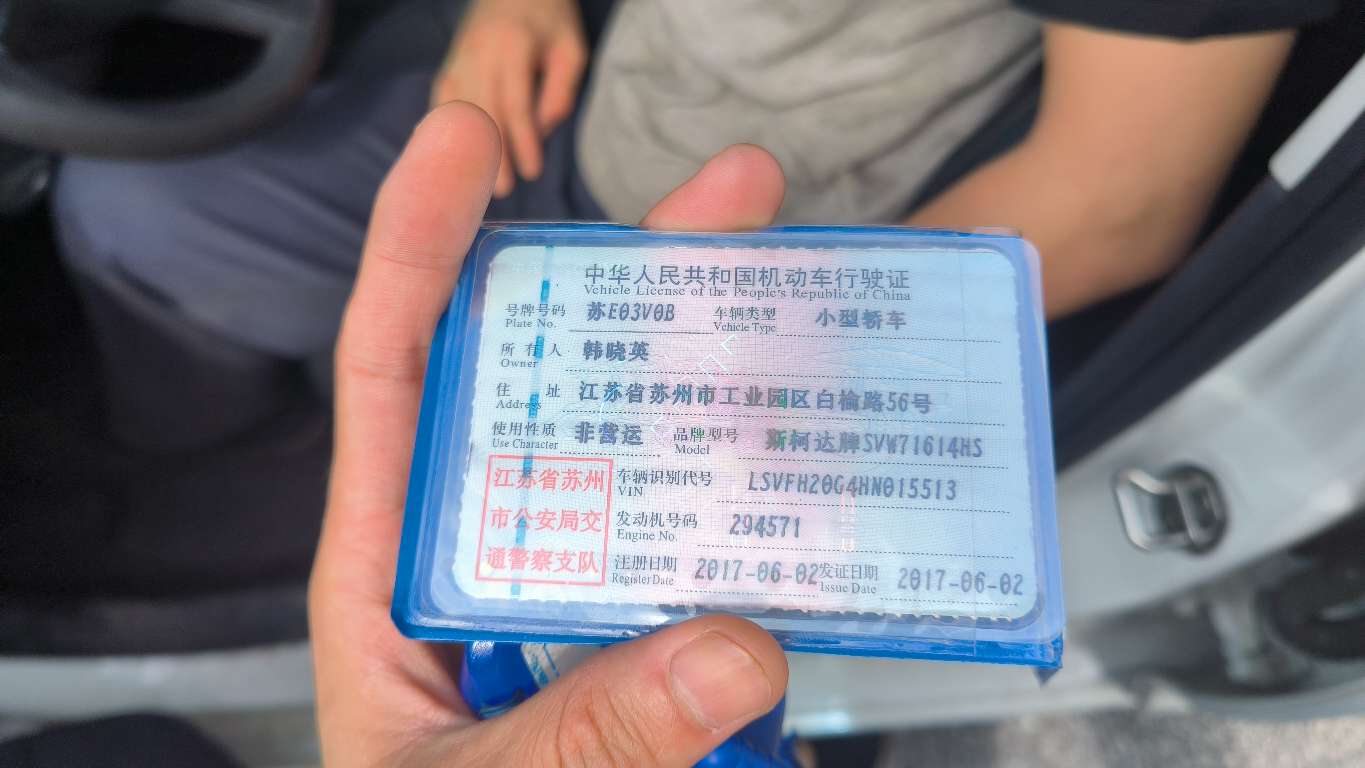 中华人民共和国机动车行驶证
Vehicle License of the People's Republic of China
号牌号码 苏E03V0B 车辆类型 小型轿车
Plate No. Vehicle Type
所有人 韩晓英
Owner
住址 江苏省苏州市工业园区白榆路56号
Address
使用性质 非营运 品牌型号 斯柯达牌SVW71614HS
Use Character Model
江苏省苏州
市公安局交
通警察支队
车辆识别代号 LSVFH20G4HN015513
VIN
发动机号码 294571
Engine No.
注册日期 2017-06-02 发证日期 2017-06-02
Register Date Issue Date